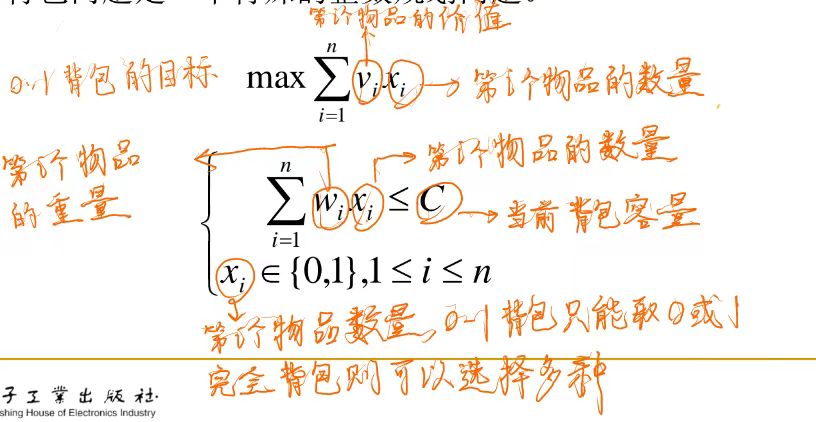 背包问题是一个特殊的整数规划问题。
第i个物品的价值
0-1背包的目标
max ∑_{i=1}^{n} v_i x_i
第i个物品的数量
第i个物品的重量
第i个物品的数量
∑_{i=1}^{n} w_i x_i ≤ C
当前背包容量
x_i ∈ {0,1}, 1 ≤ i ≤ n
第i个物品数量,0-1背包只能取0或1
完全背包则可以选择多种
子工業出版社·
shing House of Electronics Industry